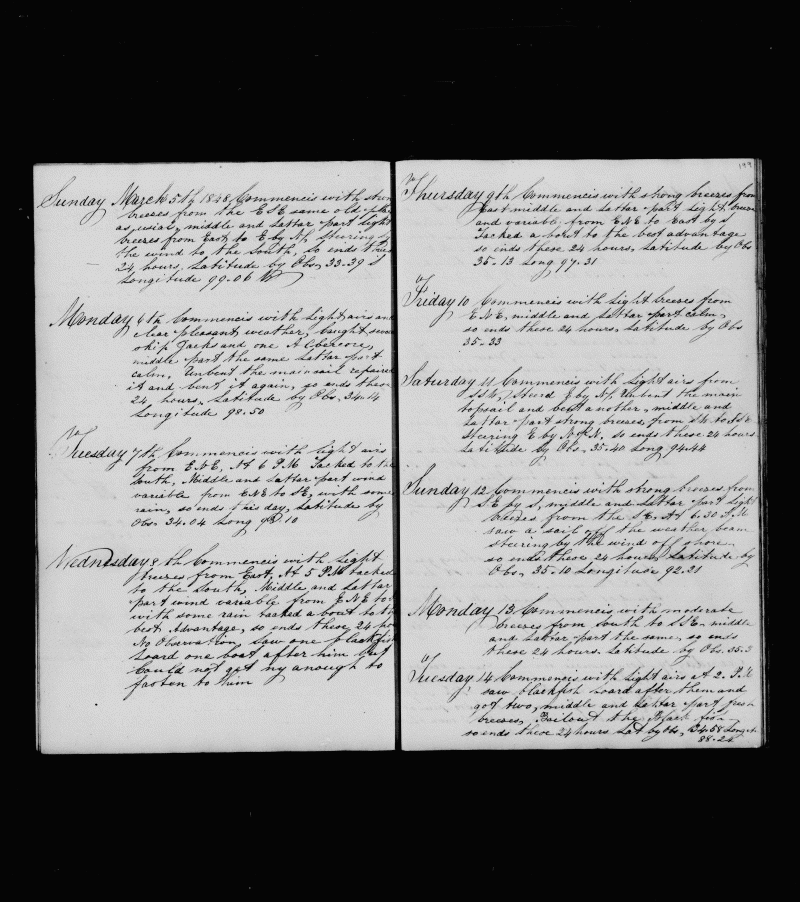 Sunday March 5th 1848 Commencis with
breezes from the ESE same old
as usial, middle and Lattar part Light
breezes from East to E by N, Steering
the wind to the South, so ends these
24 hours, Latitude by Obs, 33-39 S
Longitude 99-06 W
Monday 6th Commencis with Light airs and
clear pleasant weather, Caught
skip Jacks and one Albercore,
middle part the same Lattar part
calm, Unbent the mainsail repaired
it and bent it again, so ends these
24, hours, Latitude by Obs, 34-14
Longitude 98-50
Tuesday 7th, Commencis with Light airs
from E.N.E, At 6 P.M Tacked to the
South, Middle and Lattar part wind
variable from ENE to SE, with some
rain, so ends this day, Latitude by
Obs. 34.04 Long 98 10
Wednesday 8th Commencis with Light
breezes from East, At 5 P.M tacked
to the South, Middle and Lattar
part wind variable from E.N.E to
with some rain tacked a bout to the
best Advantage, so ends these 24 ho
No Observation, saw one blackfish
Loard one boat after him but
Could not get ny anough to
fasten to him
199
Thursday 9th Commencis with strong breezes from
East middle and Lattar part Light breezes
and variable from ENE to East by S
Tacked a bout to the best advantage
so ends these 24 hours, Latitude by Obs
35-13 Long 97.31
Friday 10 Commencis with Light breezes from
E.N.E, middle and Lattar part calm,
so ends these 24 hours, Latitude by Obs
35-33
Saturday 11 Commencis with Light airs from
SSW, Steerd E by N, Unbent the main
topsail and bent another, middle and
Lattar part strong breezes, from
Steering E by N, so ends these 24 hours
Latitude by Obs, 35-40 Long 94.44
Sunday 12 Commencis with strong breezes from
S.E by S, middle and Lattar part Light
breezes from the S.E, At 6.30 P.M
saw a sail off the weather beam
steering by the wind off shore,
so ends these 24 hours, Latitude by
Obs, 35-10 Longitude 92.31
Monday 13 Commencis with moderate
breezes from South to SSE, middle
and Lattar part the same, so ends
these 24 hours, Latitude by Obs. 35.3
Tuesday 14 Commencis with Light airs at 2. P.M
saw blackfish Loard after them and
got two, middle and Lattar part fresh
breezes, Boilout the Black fish
so ends these 24 hours Lat by Obs, 34.58 Long
88-24